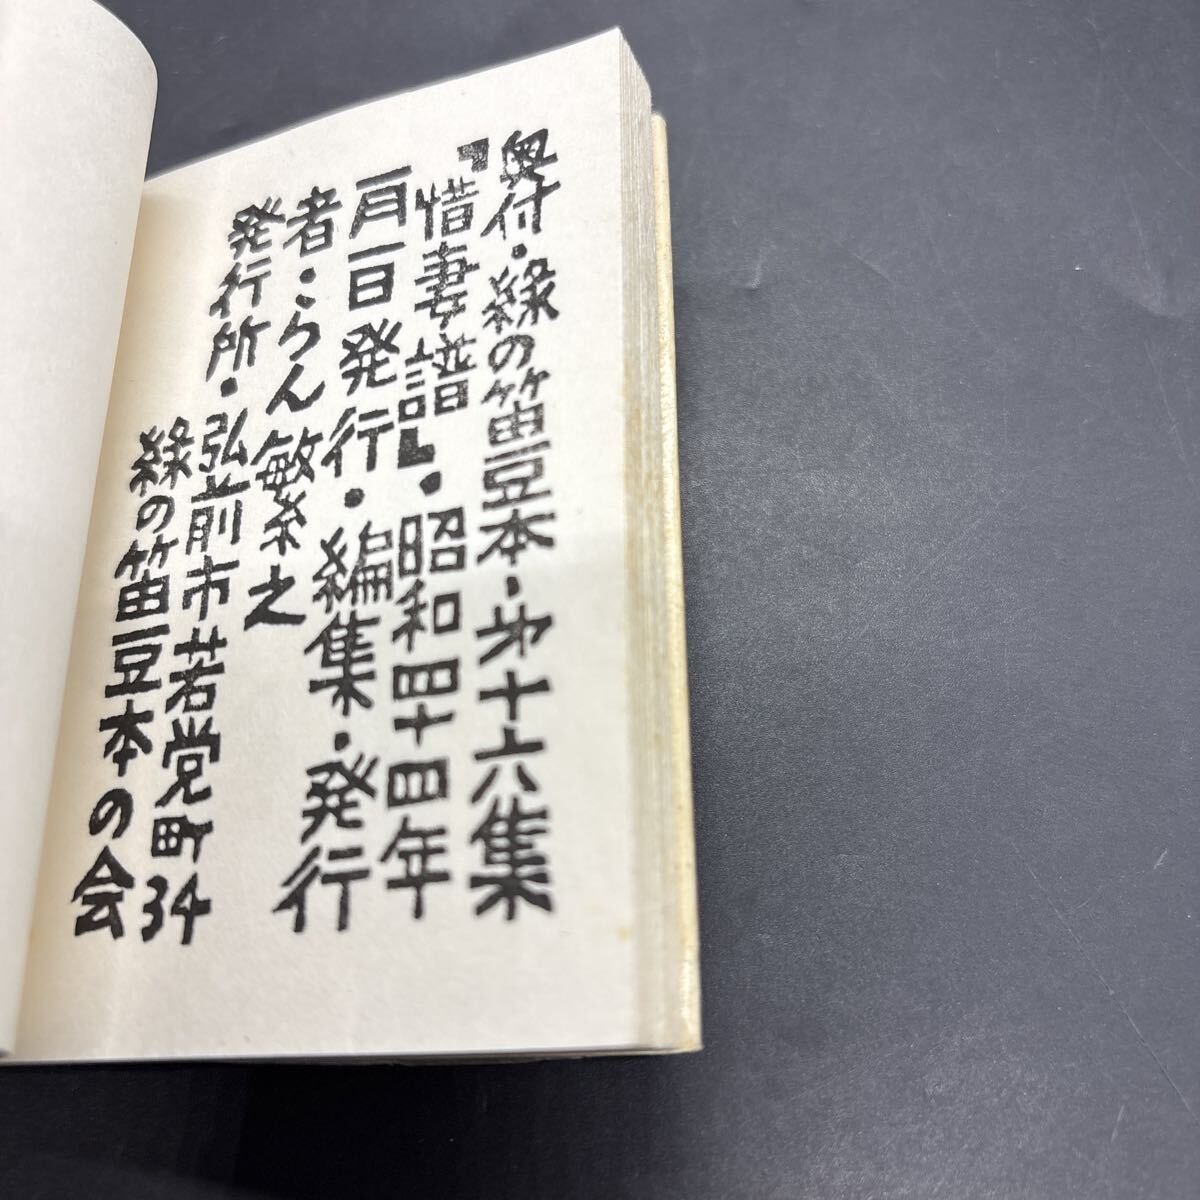 奥付・緑の笛豆本・第十六集
『惜妻譜』・昭和四十四年
一月一日発行・編集・発行
者・らん繁之
発行所・弘前市若党町34
緑の笛豆本の会